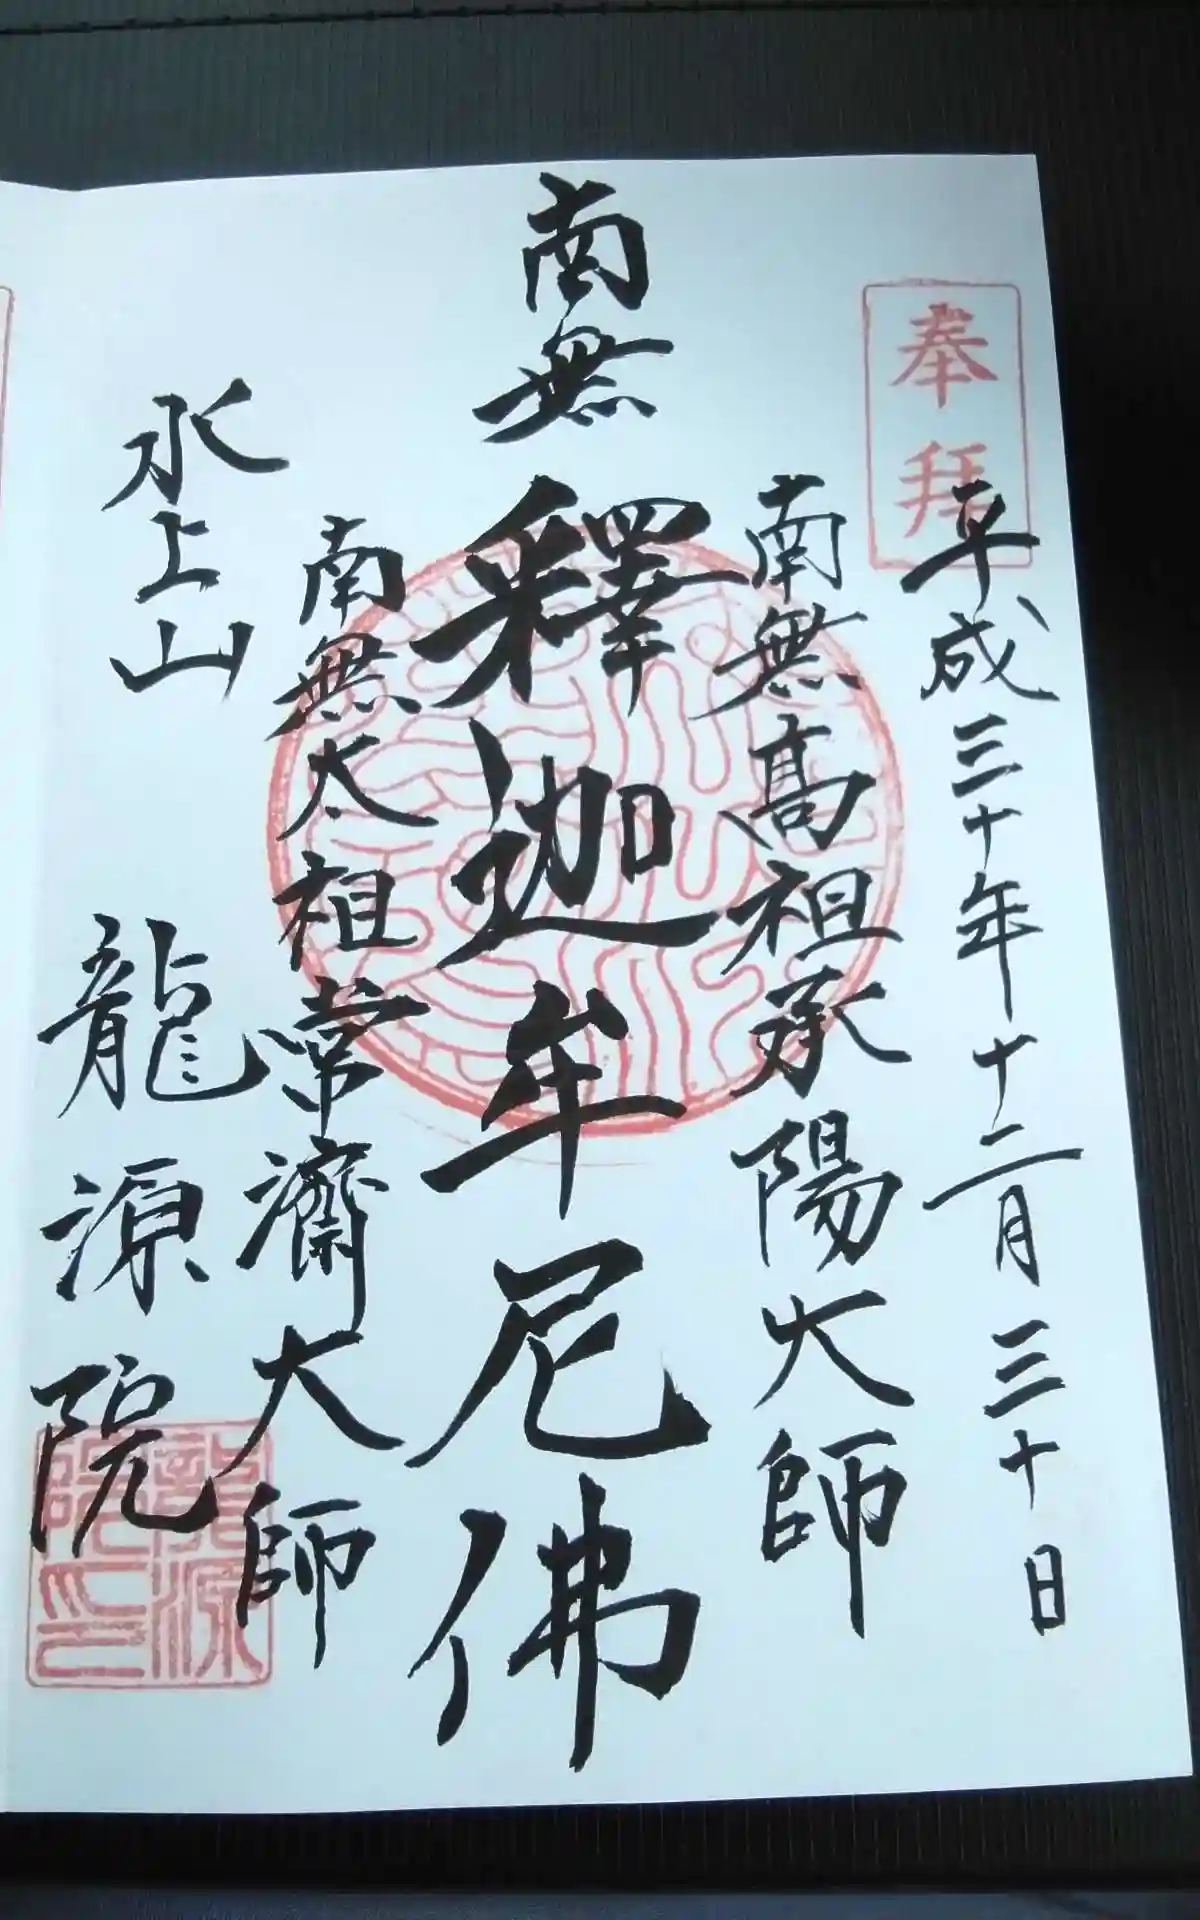 奉拜
平成三十年十二月三十日
南無高祖承陽大師
南無釋迦牟尼佛
南無太祖常濟大師
水上山
龍源院
龍源院印